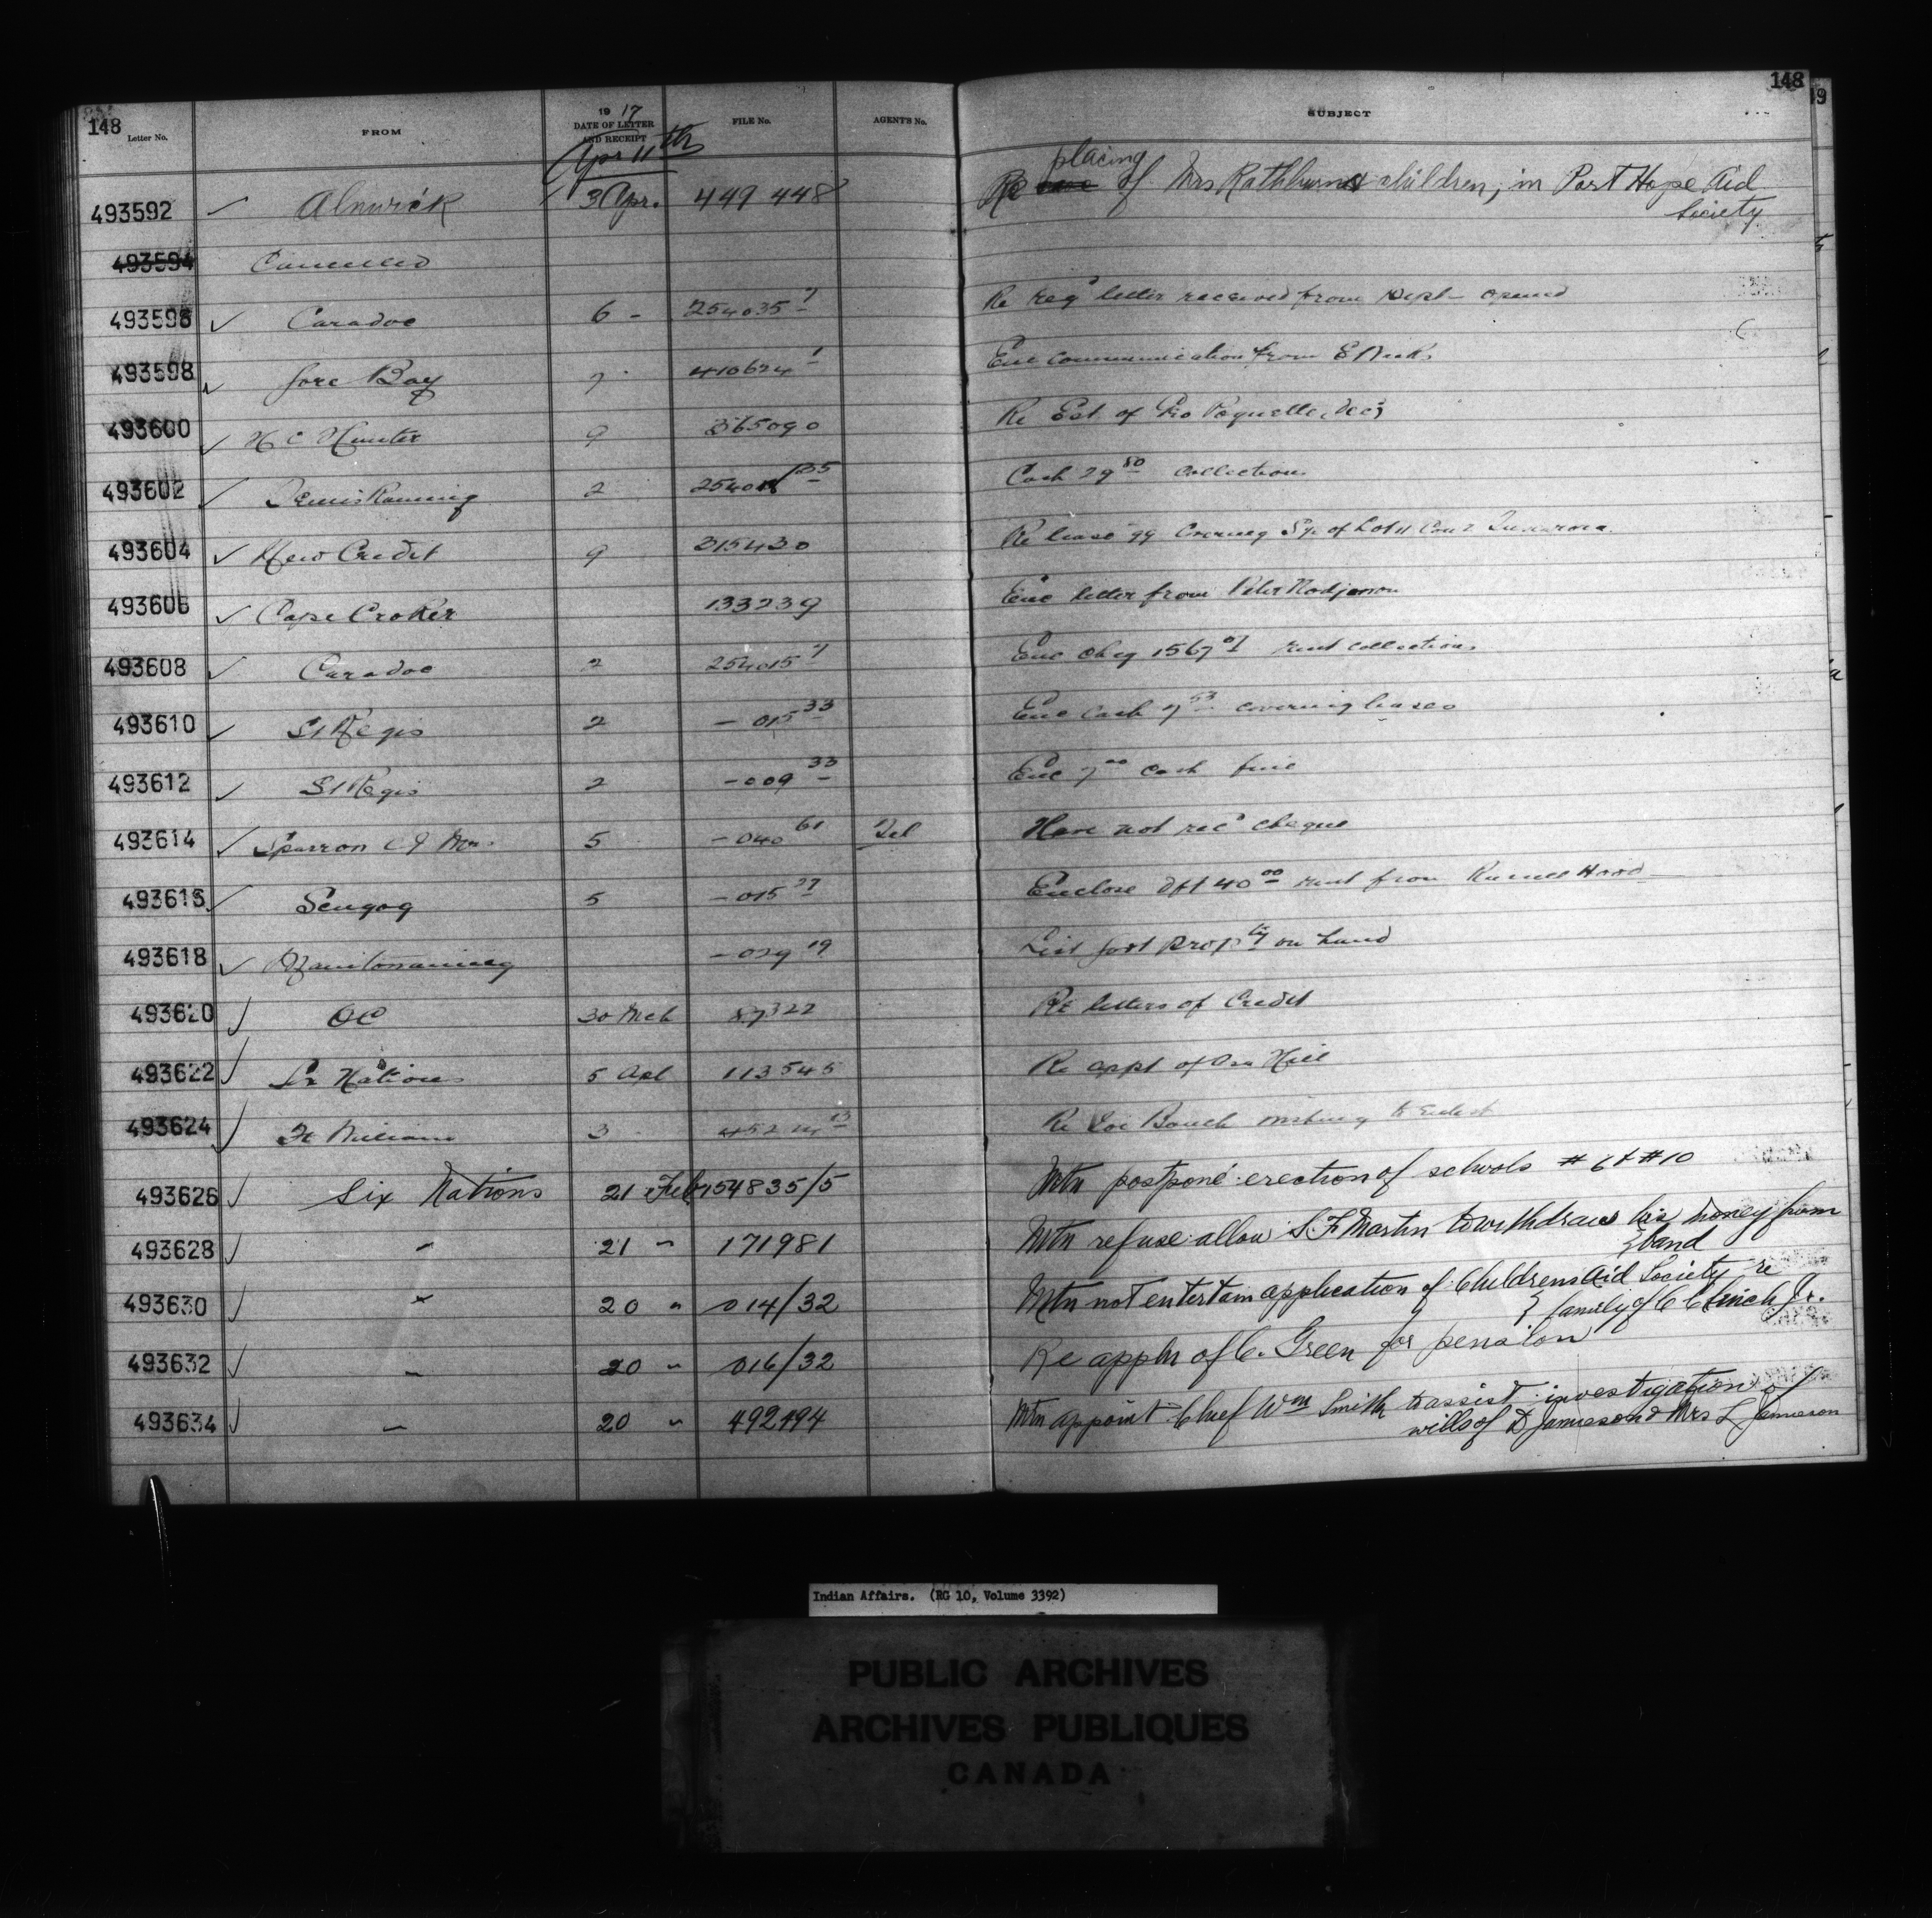 148 148
Letter No. FROM 19 17 DATE OF LETTER AND RECEIPT FILE No. AGENT'S No. SUBJECT
Apr 11th
493592 ✓ Alnwick 3 Apr. 449 448 Re placing of Mrs Rathburns children, in Port Hope Aid
Society
493594 Cancelled
493596 ✓ Caradoc 6 - 254035 7 Re reg letter received from Dept - opened
493598 ✓ Gore Bay 7 410624 1 Enc communication from
493600 ✓ H C Hunter 9 365090 Re Est of Geo Paquette, dec'd
493602 ✓ Temiskaming 2 254015 35 Cash 29 80 collections
493604 ✓ New Credit 9 315430 Re lease 99 covering of Lot 11 Con 2 Tuscarora
493606 ✓ Cape Croker 133239 Enc letter from Peter Nadjiwon
493608 ✓ Caradoc 2 254015 7 Enc cheq 1567 07 rent collections
493610 ✓ St Regis 2 - 015 33 Enc Cash 7 53 covering leases
493612 ✓ St Regis 2 - 009 33 Enc 7 00 cash fine
493614 ✓ 5 - 040 61 Tel Have not rec'd cheque
493616 ✓ Scugog 5 - 015 27 Enclose Dft 40 00 rent from
493618 ✓ Manitowaning - 029 19 List govt Prop ty on hand
493620 ✓ OC 30 Mch 87322 Re letters of Credit
493622 ✓ Six Nations 5 Apl 113545 Re appt of Asa Hill
493624 ✓ Ft William 3 452 13 Re wishing to enlist
493626 ✓ Six Nations 21 Feb 154835/5 Mtn postpone erection of schools #6 & #10
493628 ✓ " 21 " 171981 Mtn refuse allow S. F Martin to withdraw his money from
} band
493630 ✓ " 20 " 014/32 Mtn not entertain application of Childrens Aid Society re
} family of C Clinch Jr.
493632 ✓ " 20 " 016/32 Re appln of C. Green for pension
493634 ✓ " 20 " 492494 Mtn appoint Chief Wm Smith to assist investigation of
wills of D Jamieson & Mrs L Jamieson
Indian Affairs. (RG 10, Volume 3392)
PUBLIC ARCHIVES
ARCHIVES PUBLIQUES
CANADA